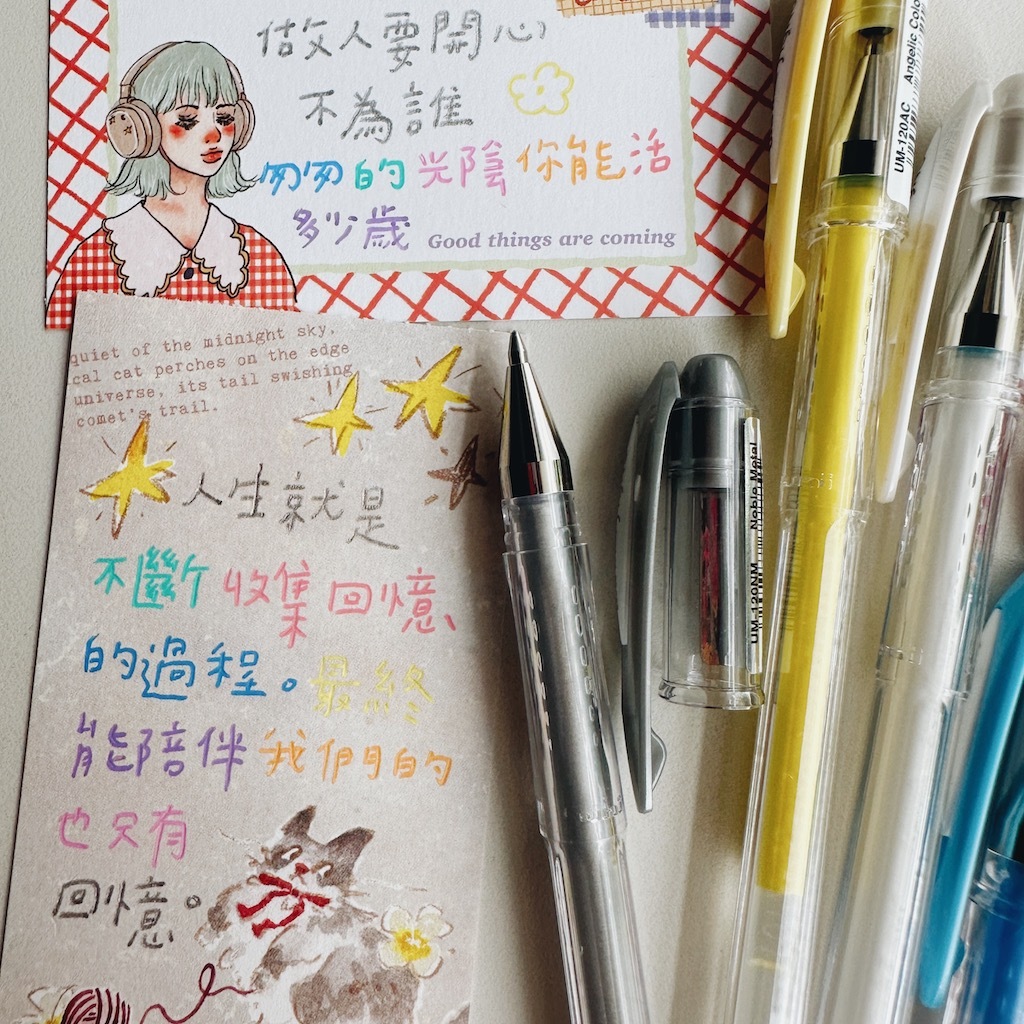 做人要開心
不為誰
匆匆的光陰你能活
多少歲
Good things are coming
quiet of the midnight sky,
cal cat perches on the edge
universe, its tail swishing
comet's trail.
人生就是
不斷收集回憶
的過程。最終
能陪伴我們的
也只有
回憶。
UM-120AC Angelic Colo
UM-120NM Noble Metal
uni